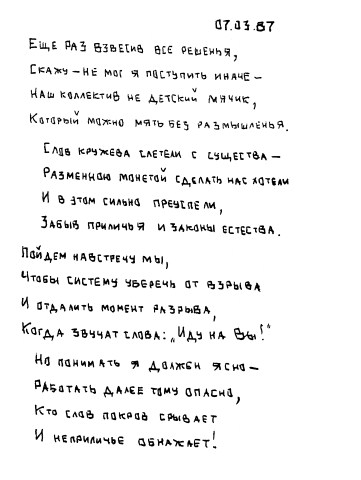 07.03.87
Еще раз взвесив все решенья,
Скажу – не мог я поступить иначе –
Наш коллектив не детский мячик,
Который можно мять без размышленья.
Слов кружева слетели с существа –
Разменною монетой сделать нас хотели
И в этом сильно преуспели,
Забыв приличья и законы естества.
Пойдем навстречу мы,
Чтобы систему уберечь от взрыва
И отдалить момент разрыва,
Когда звучат слова: „Иду на Вы!"
Но понимать я должен ясно –
Работать далее тому опасно,
Кто слов покров срывает
И неприличье обнажает!